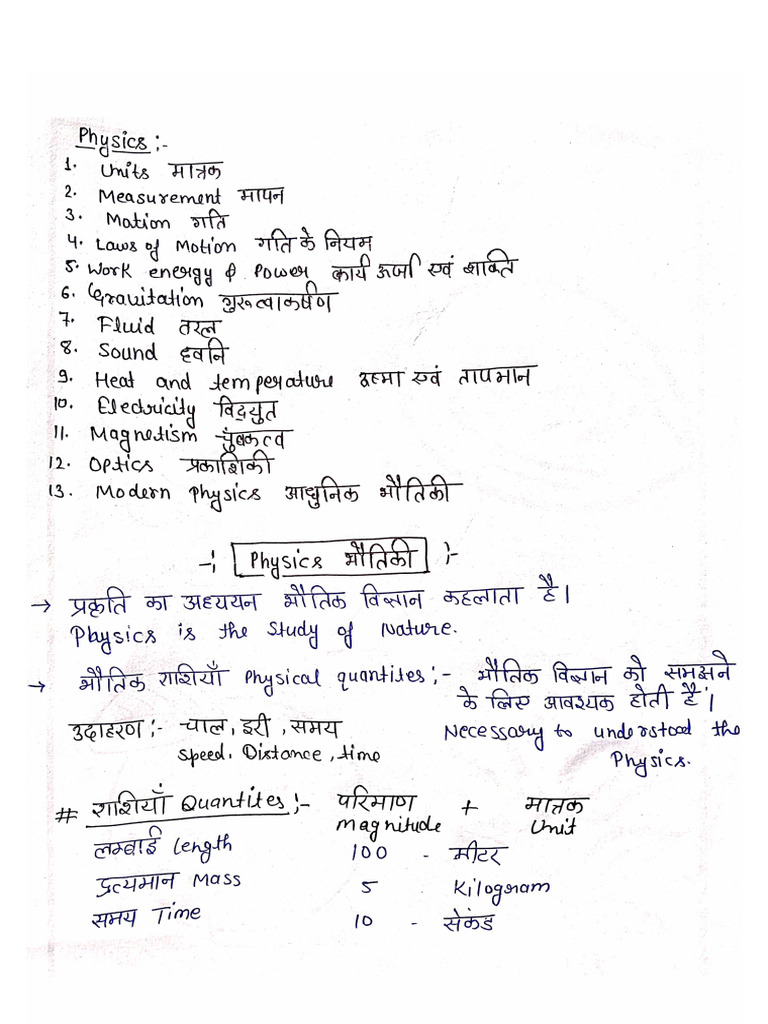 Physics :-
1. Units मात्रक
2. Measurement मापन
3. Mation गति
4. Laws of Motion गति के नियम
5. Work energy & Power कार्य ऊर्जा एवं शक्ति
6. Gravitation गुरुत्वाकर्षण
7. Fluid तरल
8. Sound ध्वनि
9. Heat and temperature ऊष्मा एवं तापमान
10. Electricity विद्युत
11. Magnetism चुंबकत्व
12. Optics प्रकाशिकी
13. Modern Physics आधुनिक भौतिकी
-: Physics भौतिकी :-
→ प्रकृति का अध्ययन भौतिक विज्ञान कहलाता है।
Physics is the Study of Nature.
→ भौतिक राशियाँ Physical quantites :- भौतिक विज्ञान को समझने
के लिए आवश्यक होती है।
उदाहरण :- चाल, दूरी, समय
Speed. Distance, time
Necessary to understood the
Physics.
# राशियाँ Quantites :- परिमाण + मात्रक
Magnitude Unit
लम्बाई length 100 - मीटर
द्रव्यमान Mass 5 Kilogram
समय Time 10 - सेकंड